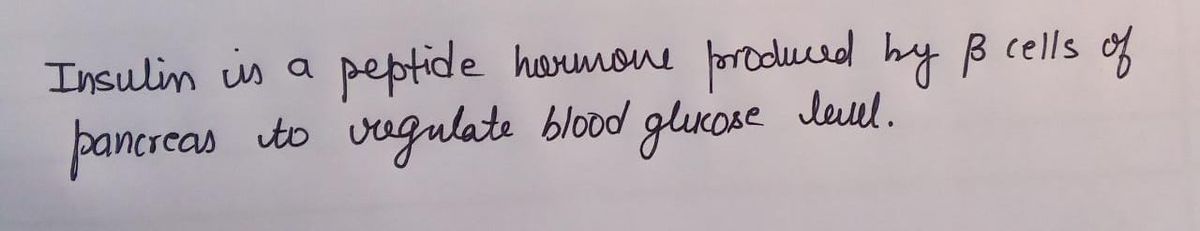 Insulin is a peptide hormone produced by β cells of
pancreas to regulate blood glucose level.